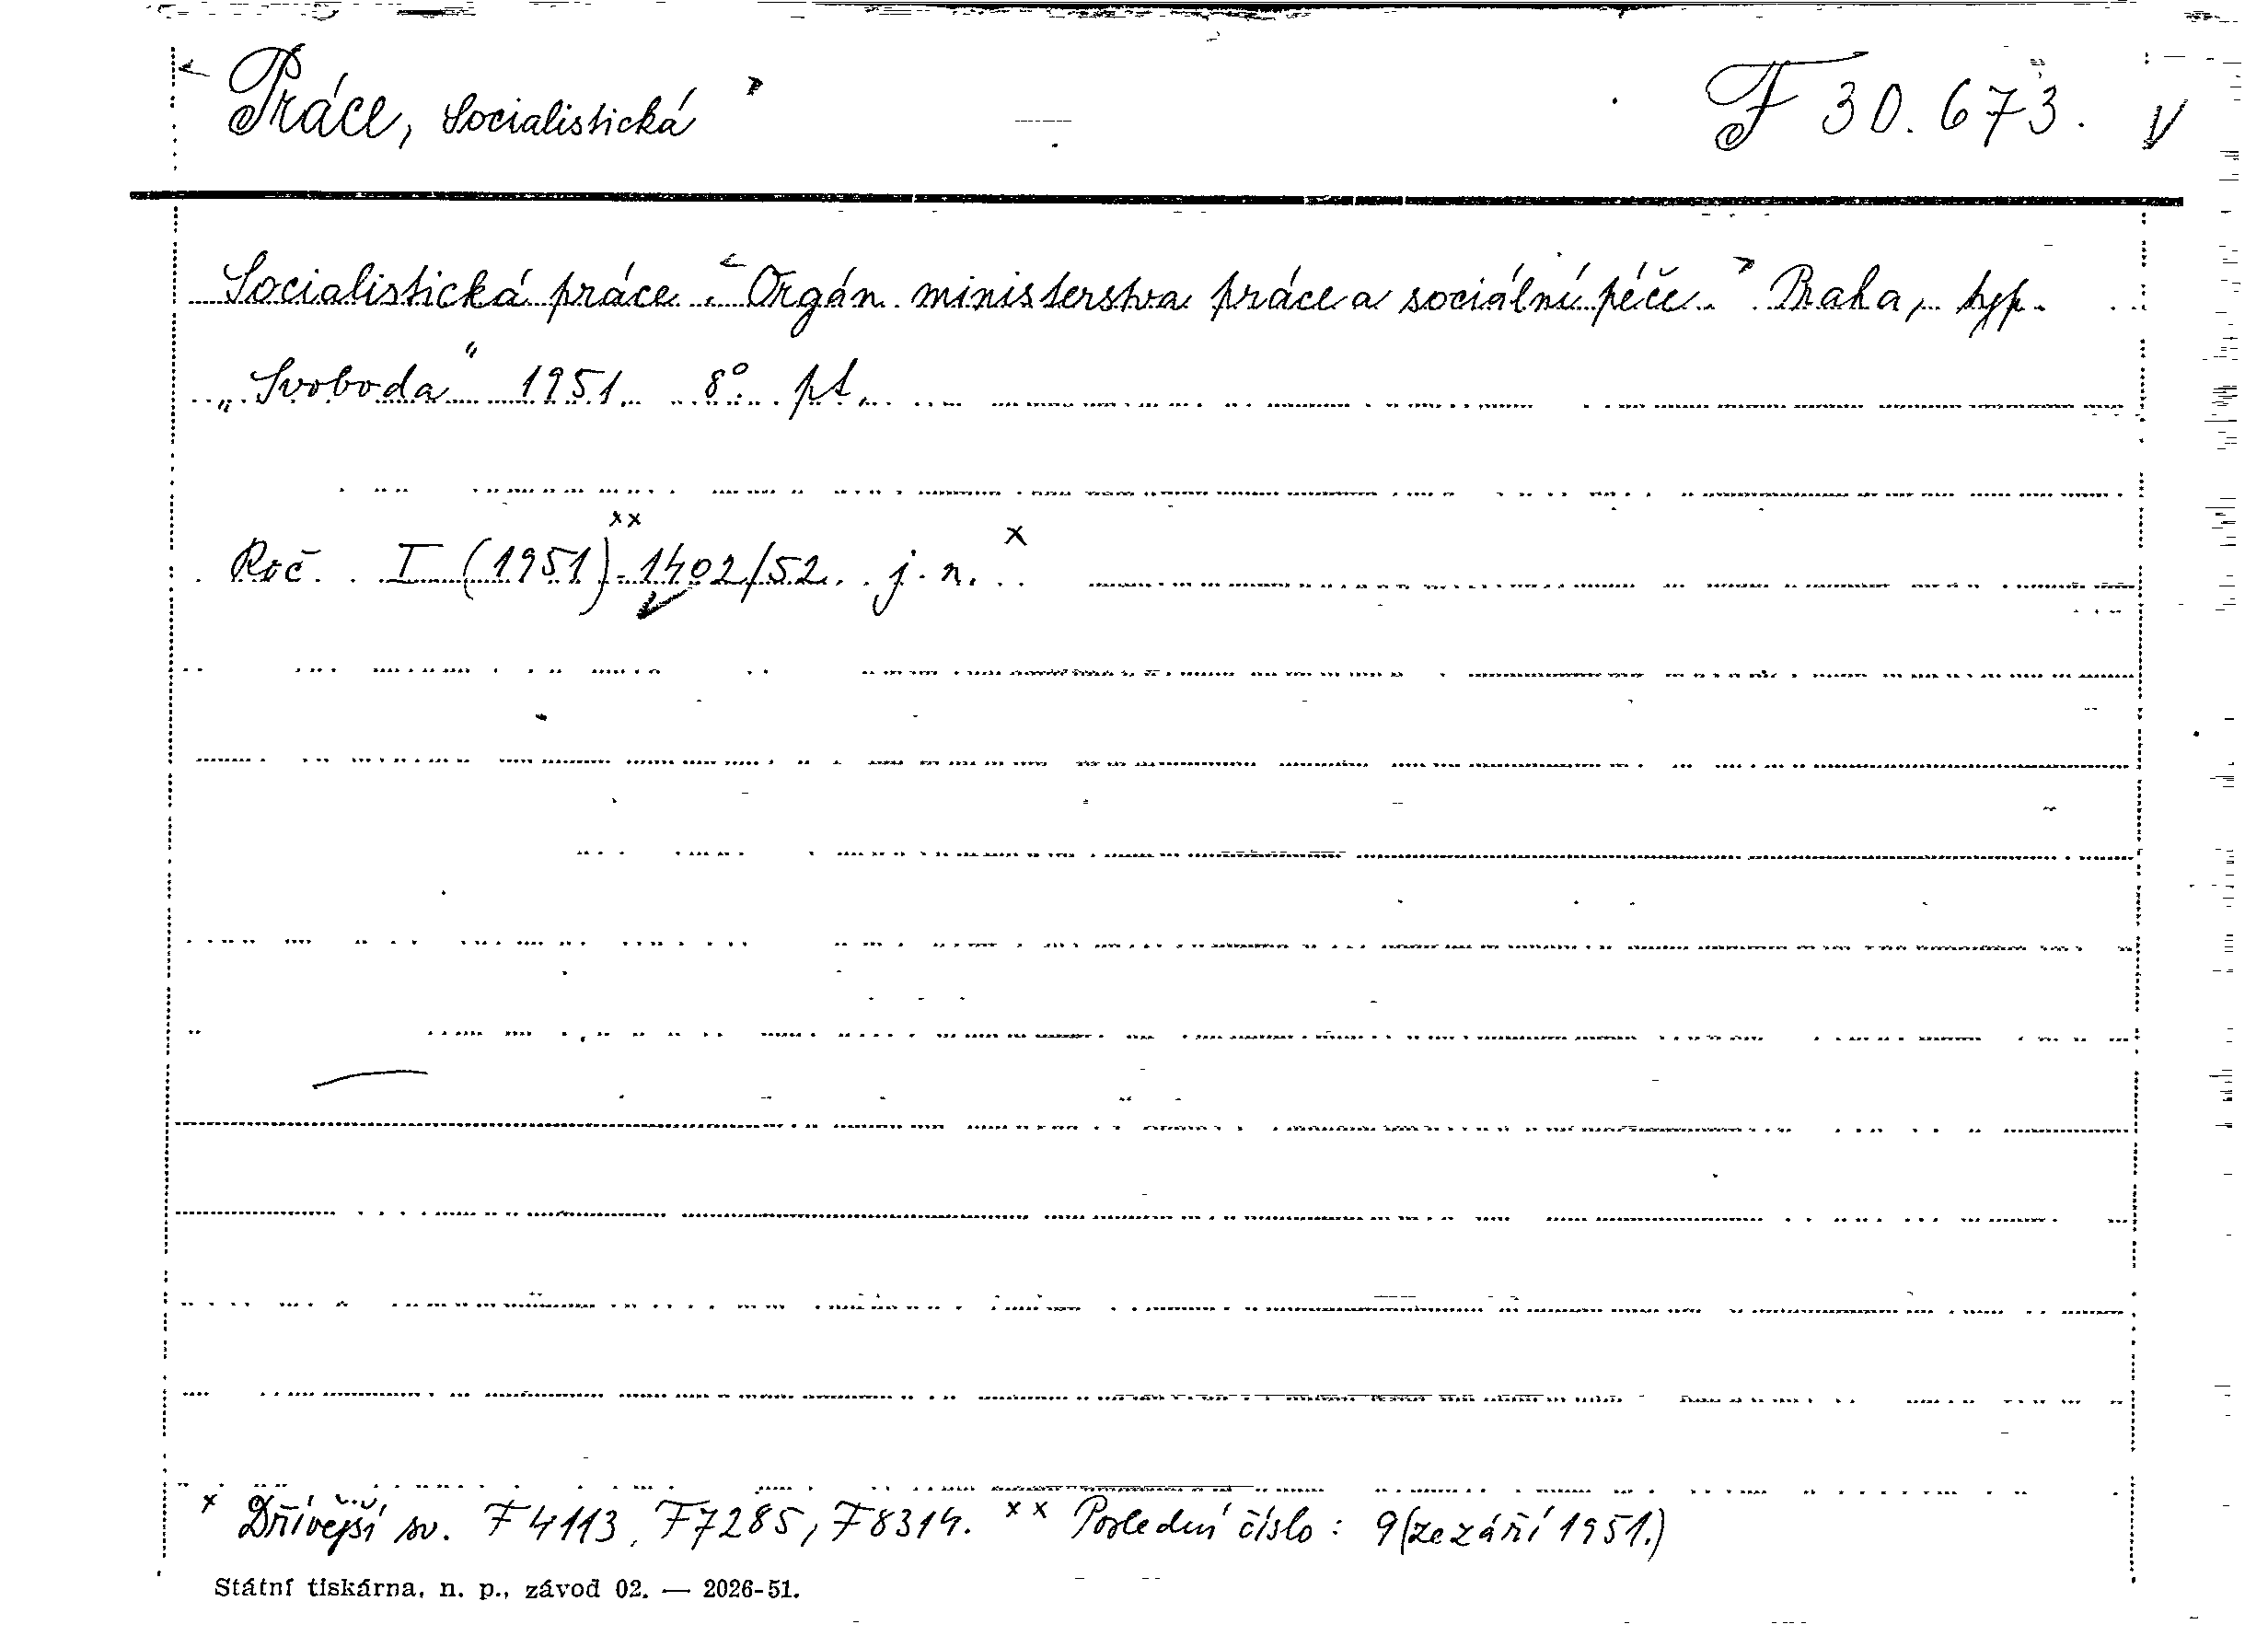 < Práce, Socialistická > F 30.673. V
Socialistická práce. < Orgán ministerstva práce a sociální péče. > Praha, typ.
„Svoboda“ 1951. 8° pt.
Roč. I (1951)xx-1402/52. j. n. x
x Dřívější sv. F 4113, F7285, F8314. xx Poslední číslo: 9 (ze září 1951.)
Státní tiskárna, n. p., závod 02. — 2026-51.